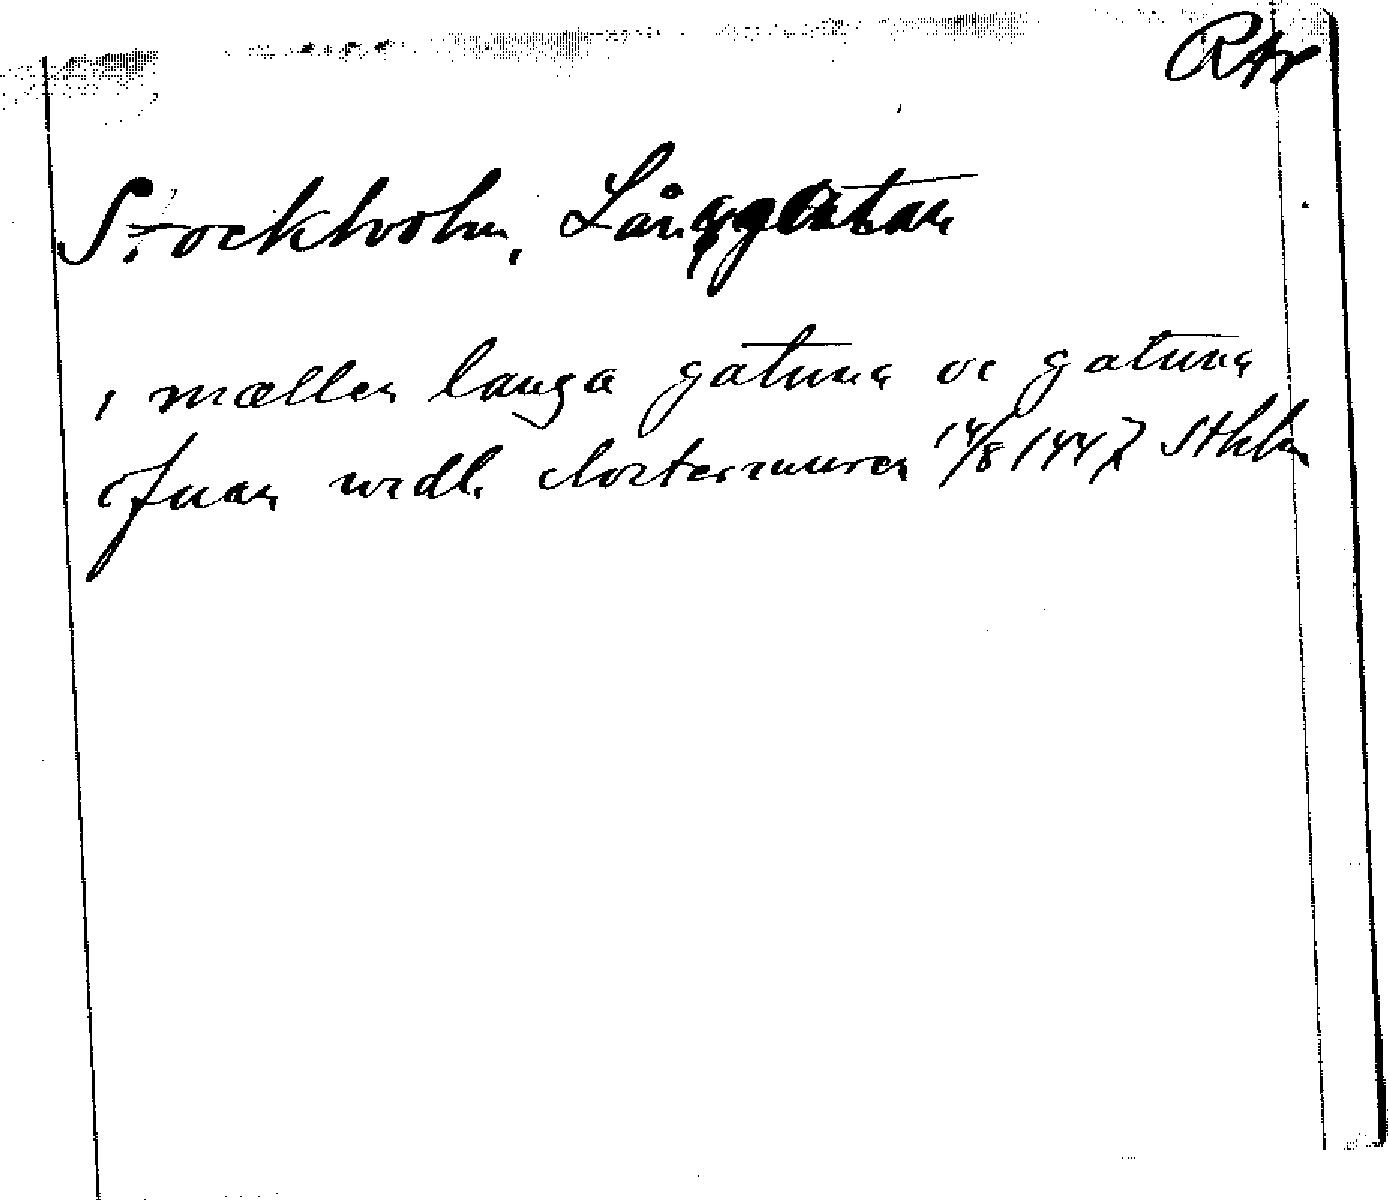 Rtr
Stockholm, Långgatan
i mællen langa gatuna oc gatuna
ofuan widh clostermuren 14/8 1447 Sthlm